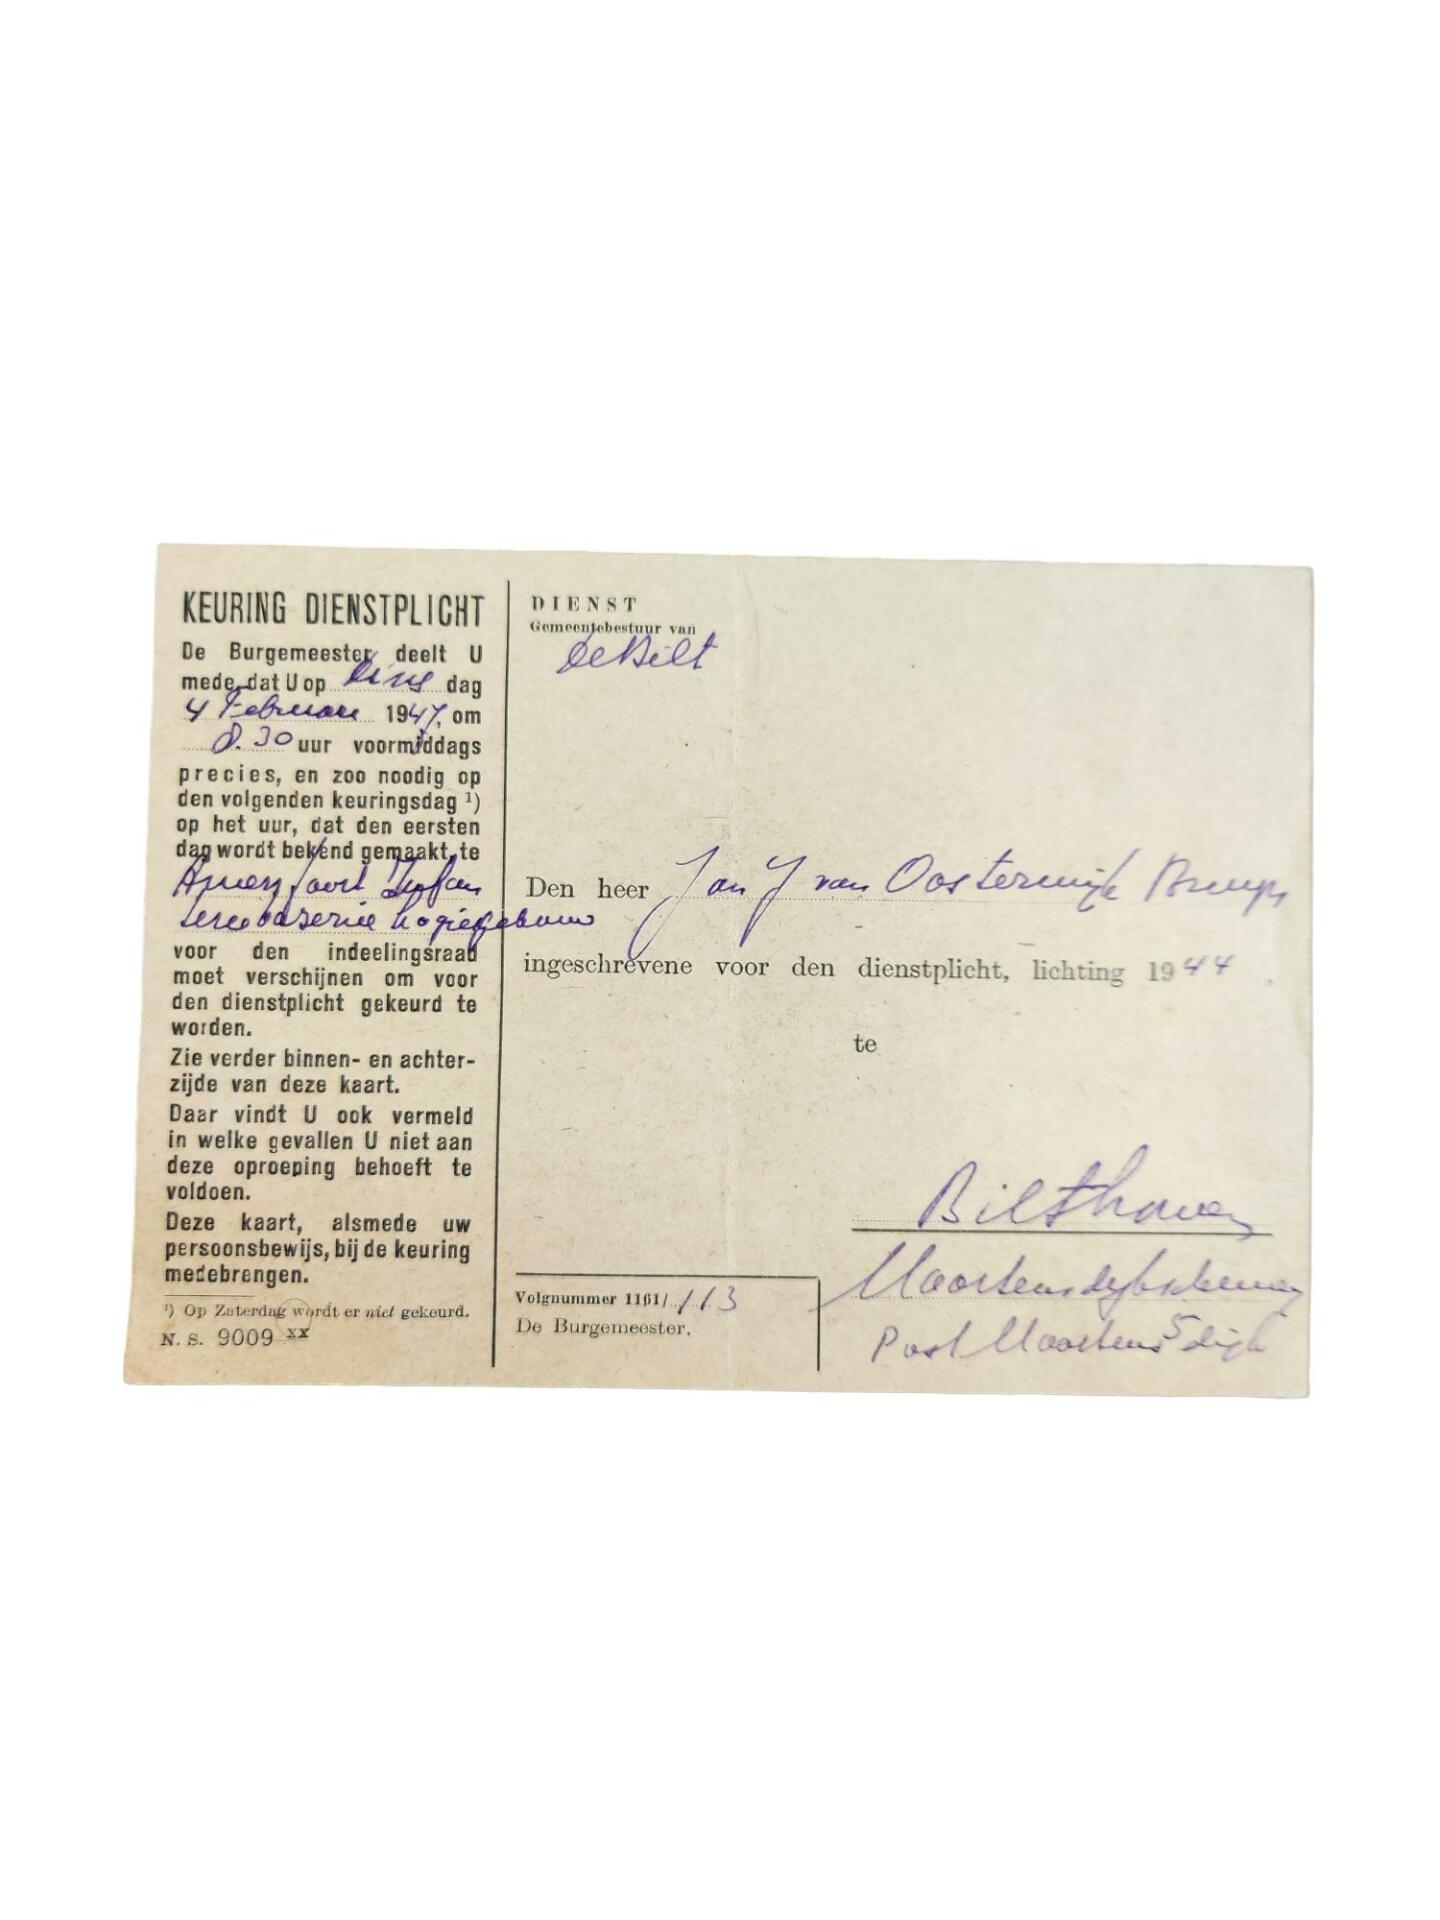 KEURING DIENSTPLICHT
De Burgemeester deelt U
mede dat U op Dins dag
4 Februari 1947, om
8.30 uur voormiddags
precies, en zoo noodig op
den volgenden keuringsdag ¹)
op het uur, dat den eersten
dag wordt bekend gemaakt, te
Amersfoort
logiesgebouw
voor den indeelingsraad
moet verschijnen om voor
den dienstplicht gekeurd te
worden.
Zie verder binnen- en achter-
zijde van deze kaart.
Daar vindt U ook vermeld
in welke gevallen U niet aan
deze oproeping behoeft te
voldoen.
Deze kaart, alsmede uw
persoonsbewijs, bij de keuring
medebrengen.
¹) Op Zaterdag wordt er niet gekeurd.
N. S. 9009 XX
DIENST
Gemeentebestuur van
De Bilt
Den heer Jan J van Oosterwijk Bruyn
ingeschrevene voor den dienstplicht, lichting 1944
te
Bilthoven
Maartensdijkscheweg
Post Maartensdijk
Volgnummer 1161/113
De Burgemeester,